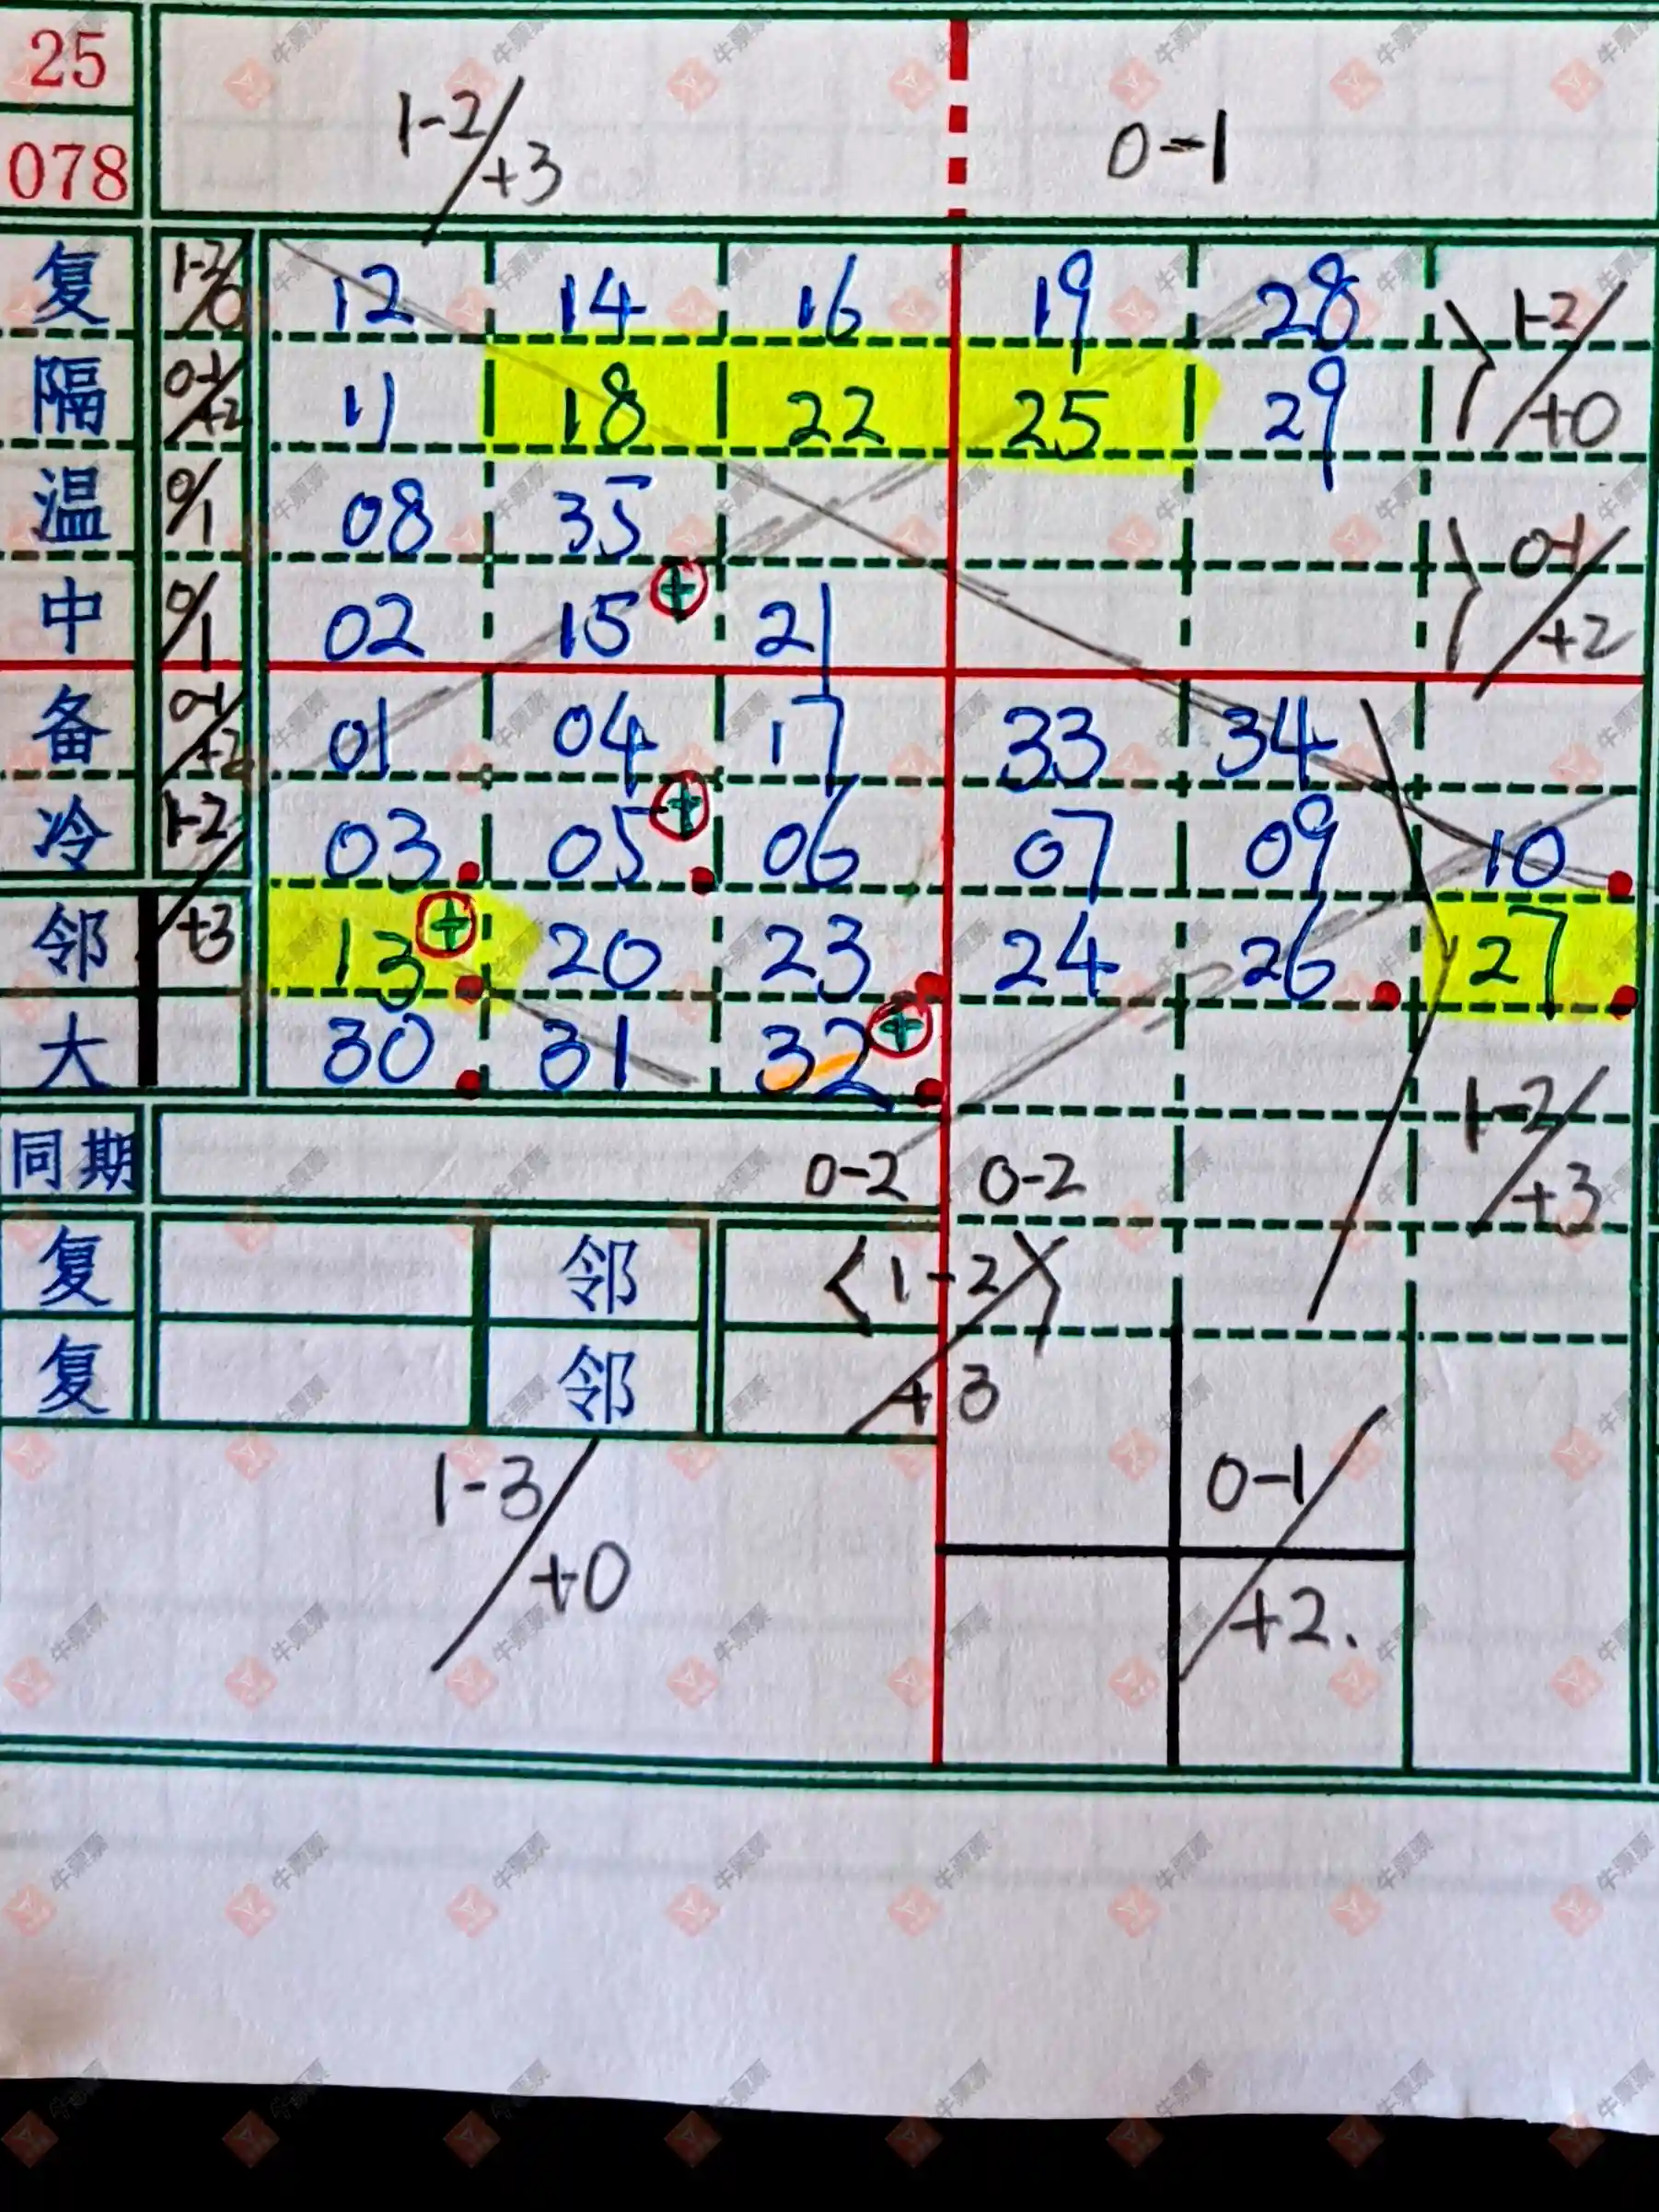 25
078
1-2/+3 0-1
复 1-2/0 12 14 16 19 28 1-2/+0
隔 0-1/+2 11 18 22 25 29
温 0/1 08 35 0-1/+2
中 0/1 02 15 + 21
备 0-1/+2 01 04 17 33 34
冷 1-2/+3 03 05 + 06 07 09 10
邻 13 + 20 23 24 26 27
大 30 31 32 + 1-2/+3
同期 0-2 0-2
复 邻 <1-2>/+3
复 邻
1-3/+0 0-1/+2.
牛票票